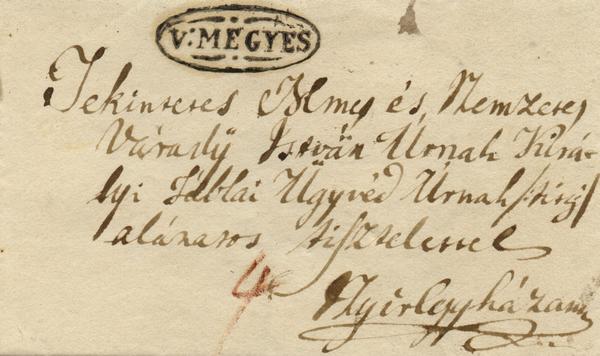 V: MEGYES
Tekintetes Nemes és Nemzetes
Várady István Úrnak Kirá-
lyi Táblai Ügyvéd Úrnak
alázatos tisztelettel
4
Nyíregyházán